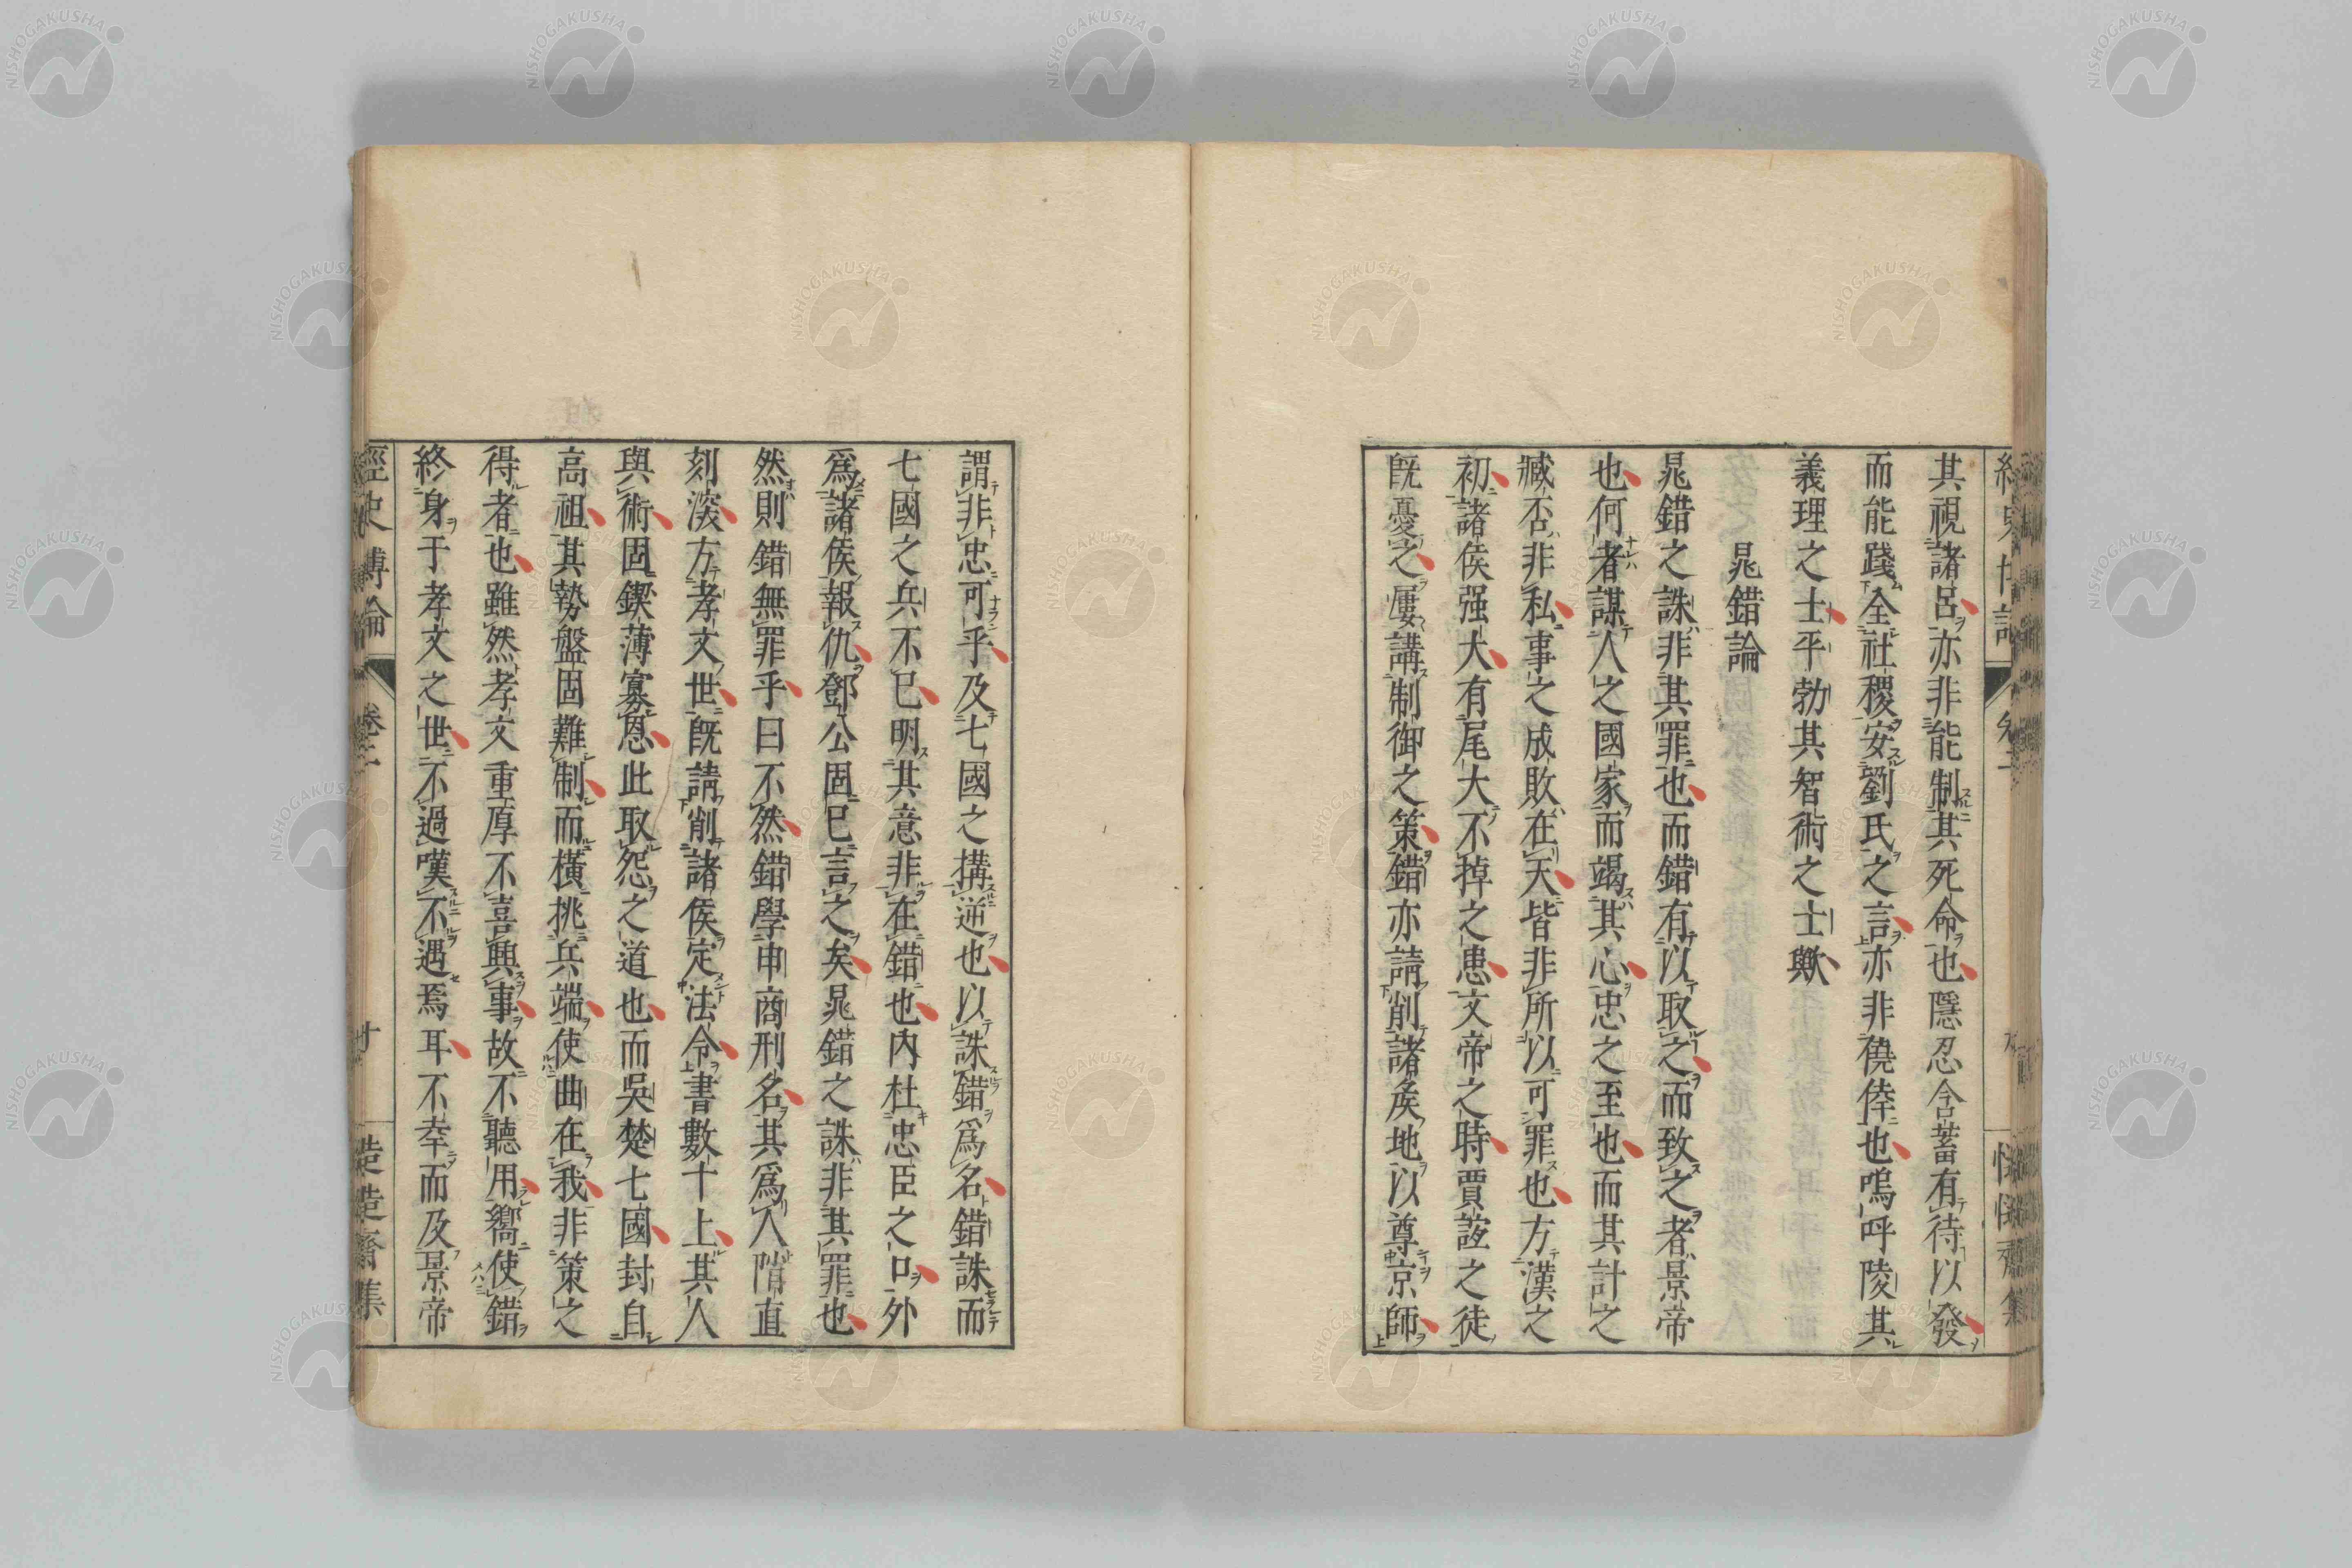 其視諸呂亦非能制其死命也隱忍含蓄有待以發
而能踐全社稷安劉氏之言亦非僥倖也嗚呼陵其
義理之士平勃其智術之士歟
晁錯論
晁錯之誅非其罪也而錯有以取之而致之者景帝
也何者謀人之國家而竭其心忠之至也而其計之
臧否非私事之成敗在天皆非所以可罪也方漢之
初諸侯强大有尾大不掉之患文帝之時賈誼之徒
既憂之屢講制御之策錯亦請削諸矦地以尊京師
謂非忠可乎及七國之搆逆也以誅錯爲名錯誅而
七國之兵不已明其意非在錯也內杜忠臣之口外
爲諸侯報仇鄧公固已言之矣晁錯之誅非其罪也
然則錯無罪乎曰不然錯學申商刑名其爲人陗直
刻深方孝文世既請削諸侯定法令書數十上其人
與術固鍥薄寡恩此取怨之道也而吳楚七國封自
高祖其勢盤固難制而橫挑兵端使曲在我非策之
得者也雖然孝文重厚不喜興事故不聽用嚮使錯
終身于孝文之世不過嘆不遇焉耳不幸而及景帝
經史博論
卷二
十
慥慥齋集
NISHOGAKUSHA